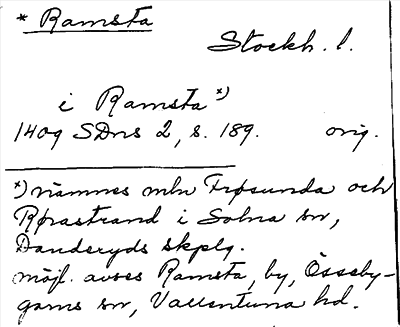 * Ramsta
Stockh. l.
i Ramsta *)
1409 SDns 2, s. 189. orig.
*) nämnes mln Frøsunda och
Rørastrand i Solna sn,
Danderyds skplg.
möjl. avses Ramsta, by, Össeby-
garns sn, Vallentuna hd.